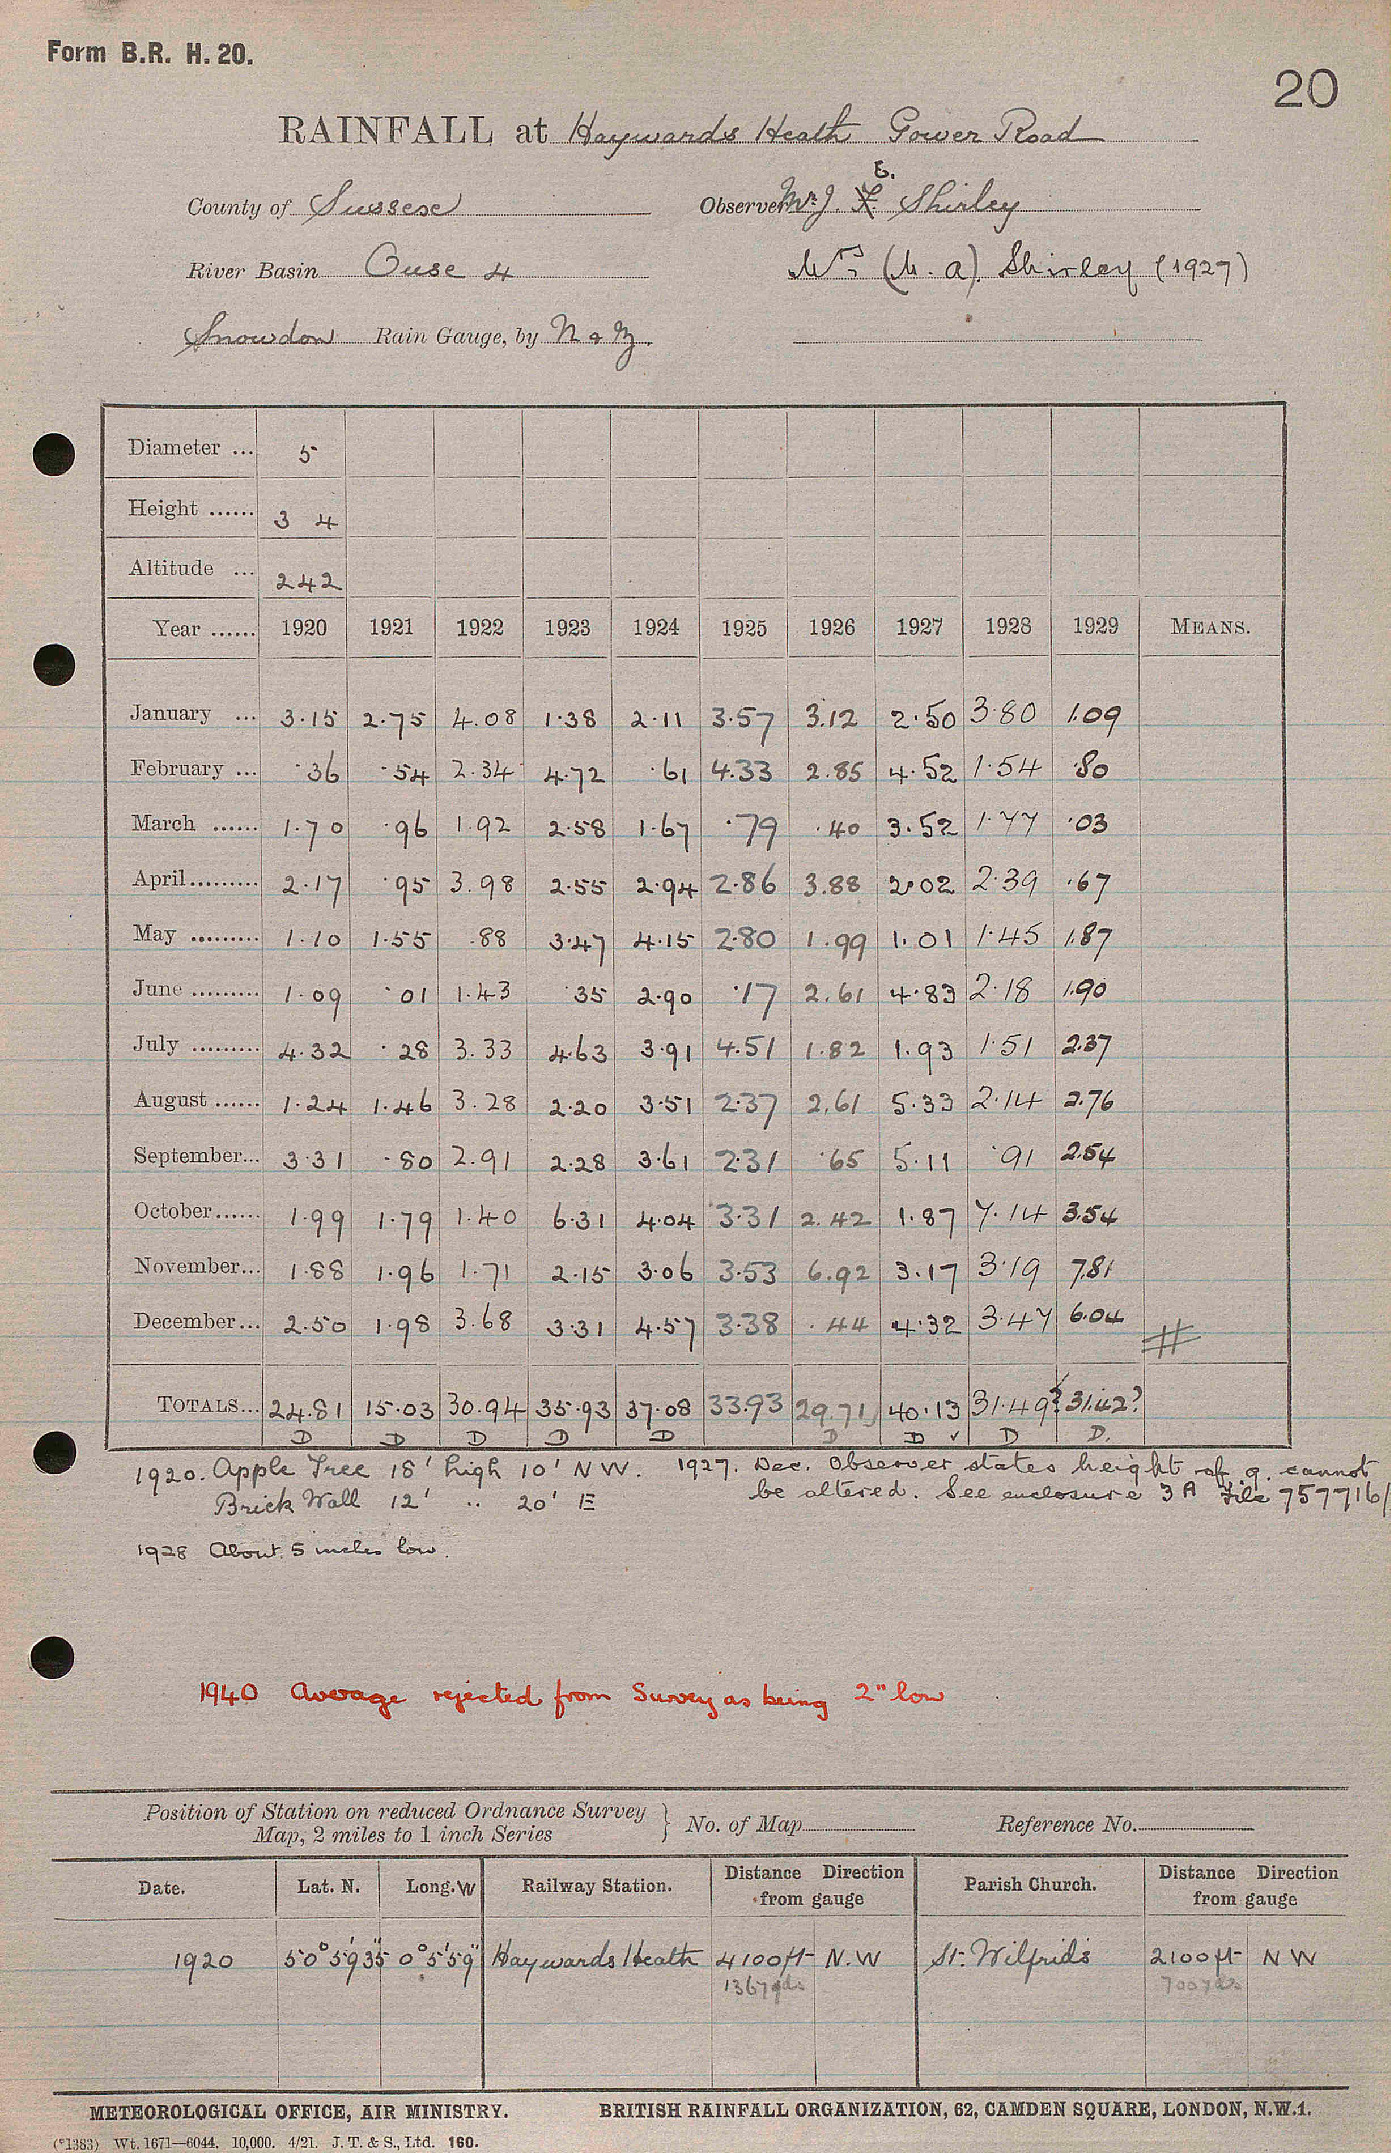 Form B.R. H. 20.
20
RAINFALL at Haywards Heath Gower Road
E.
County of Sussex Observer Mr J. F. Shirley
River Basin Ouse 4 Mrs (M. A). Shirley (1927)
Snowdon Rain Gauge, by N & Z
Diameter ... 5
Height ...... 3 4
Altitude ... 242
Year ...... 1920 1921 1922 1923 1924 1925 1926 1927 1928 1929 MEANS.
January ... 3.15 2.75 4.08 1.38 2.11 3.57 3.12 2.50 3.80 1.09
February ... .36 .54 2.34 4.72 .61 4.33 2.85 4.52 1.54 .80
March ...... 1.70 .96 1.92 2.58 1.67 .79 .40 3.52 1.77 .03
April ......... 2.17 .95 3.98 2.55 2.94 2.86 3.88 2.02 2.39 .67
May ......... 1.10 1.55 .88 3.47 4.15 2.80 1.99 1.01 1.45 1.87
June ......... 1.09 .01 1.43 .35 2.90 .17 2.61 4.83 2.18 1.90
July ......... 4.32 .28 3.33 4.63 3.91 4.51 1.82 1.93 1.51 2.37
August ...... 1.24 1.46 3.28 2.20 3.51 2.37 2.61 5.33 2.14 2.76
September... 3.31 .80 2.91 2.28 3.61 2.31 .65 5.11 .91 2.54
October...... 1.99 1.79 1.40 6.31 4.04 3.31 2.42 1.87 7.14 3.54
November... 1.88 1.96 1.71 2.15 3.06 3.53 6.92 3.17 3.19 7.81
December... 2.50 1.98 3.68 3.31 4.57 3.38 .44 4.32 3.47 6.04
#
TOTALS... 24.81 15.03 30.94 35.93 37.08 33.93 29.71 40.13 31.49? 31.42?
D D D D D D D ✓ D D.
1920. Apple Tree 18' high 10' NW. 1927. Dec. Observer states height of g. cannot
Brick Wall 12' " 20' E be altered. See enclosure 3A File 757716/
1928 About 5 inches low.
1940 Average rejected from Survey as being 2" low
Position of Station on reduced Ordnance Survey
Map, 2 miles to 1 inch Series } No. of Map Reference No.
Date. Lat. N. Long. W Railway Station. Distance Direction from gauge Parish Church. Distance Direction from gauge
1920 50° 59' 35" 0° 5' 59" Haywards Heath 4100 ft N.W St. Wilfrid's 2100 ft N W
1367 yds 700 yds
METEOROLOGICAL OFFICE, AIR MINISTRY. BRITISH RAINFALL ORGANIZATION, 62, CAMDEN SQUARE, LONDON, N.W.1.
(*1383) Wt. 1671—6044. 10,000. 4/21. J. T. & S., Ltd. 160.